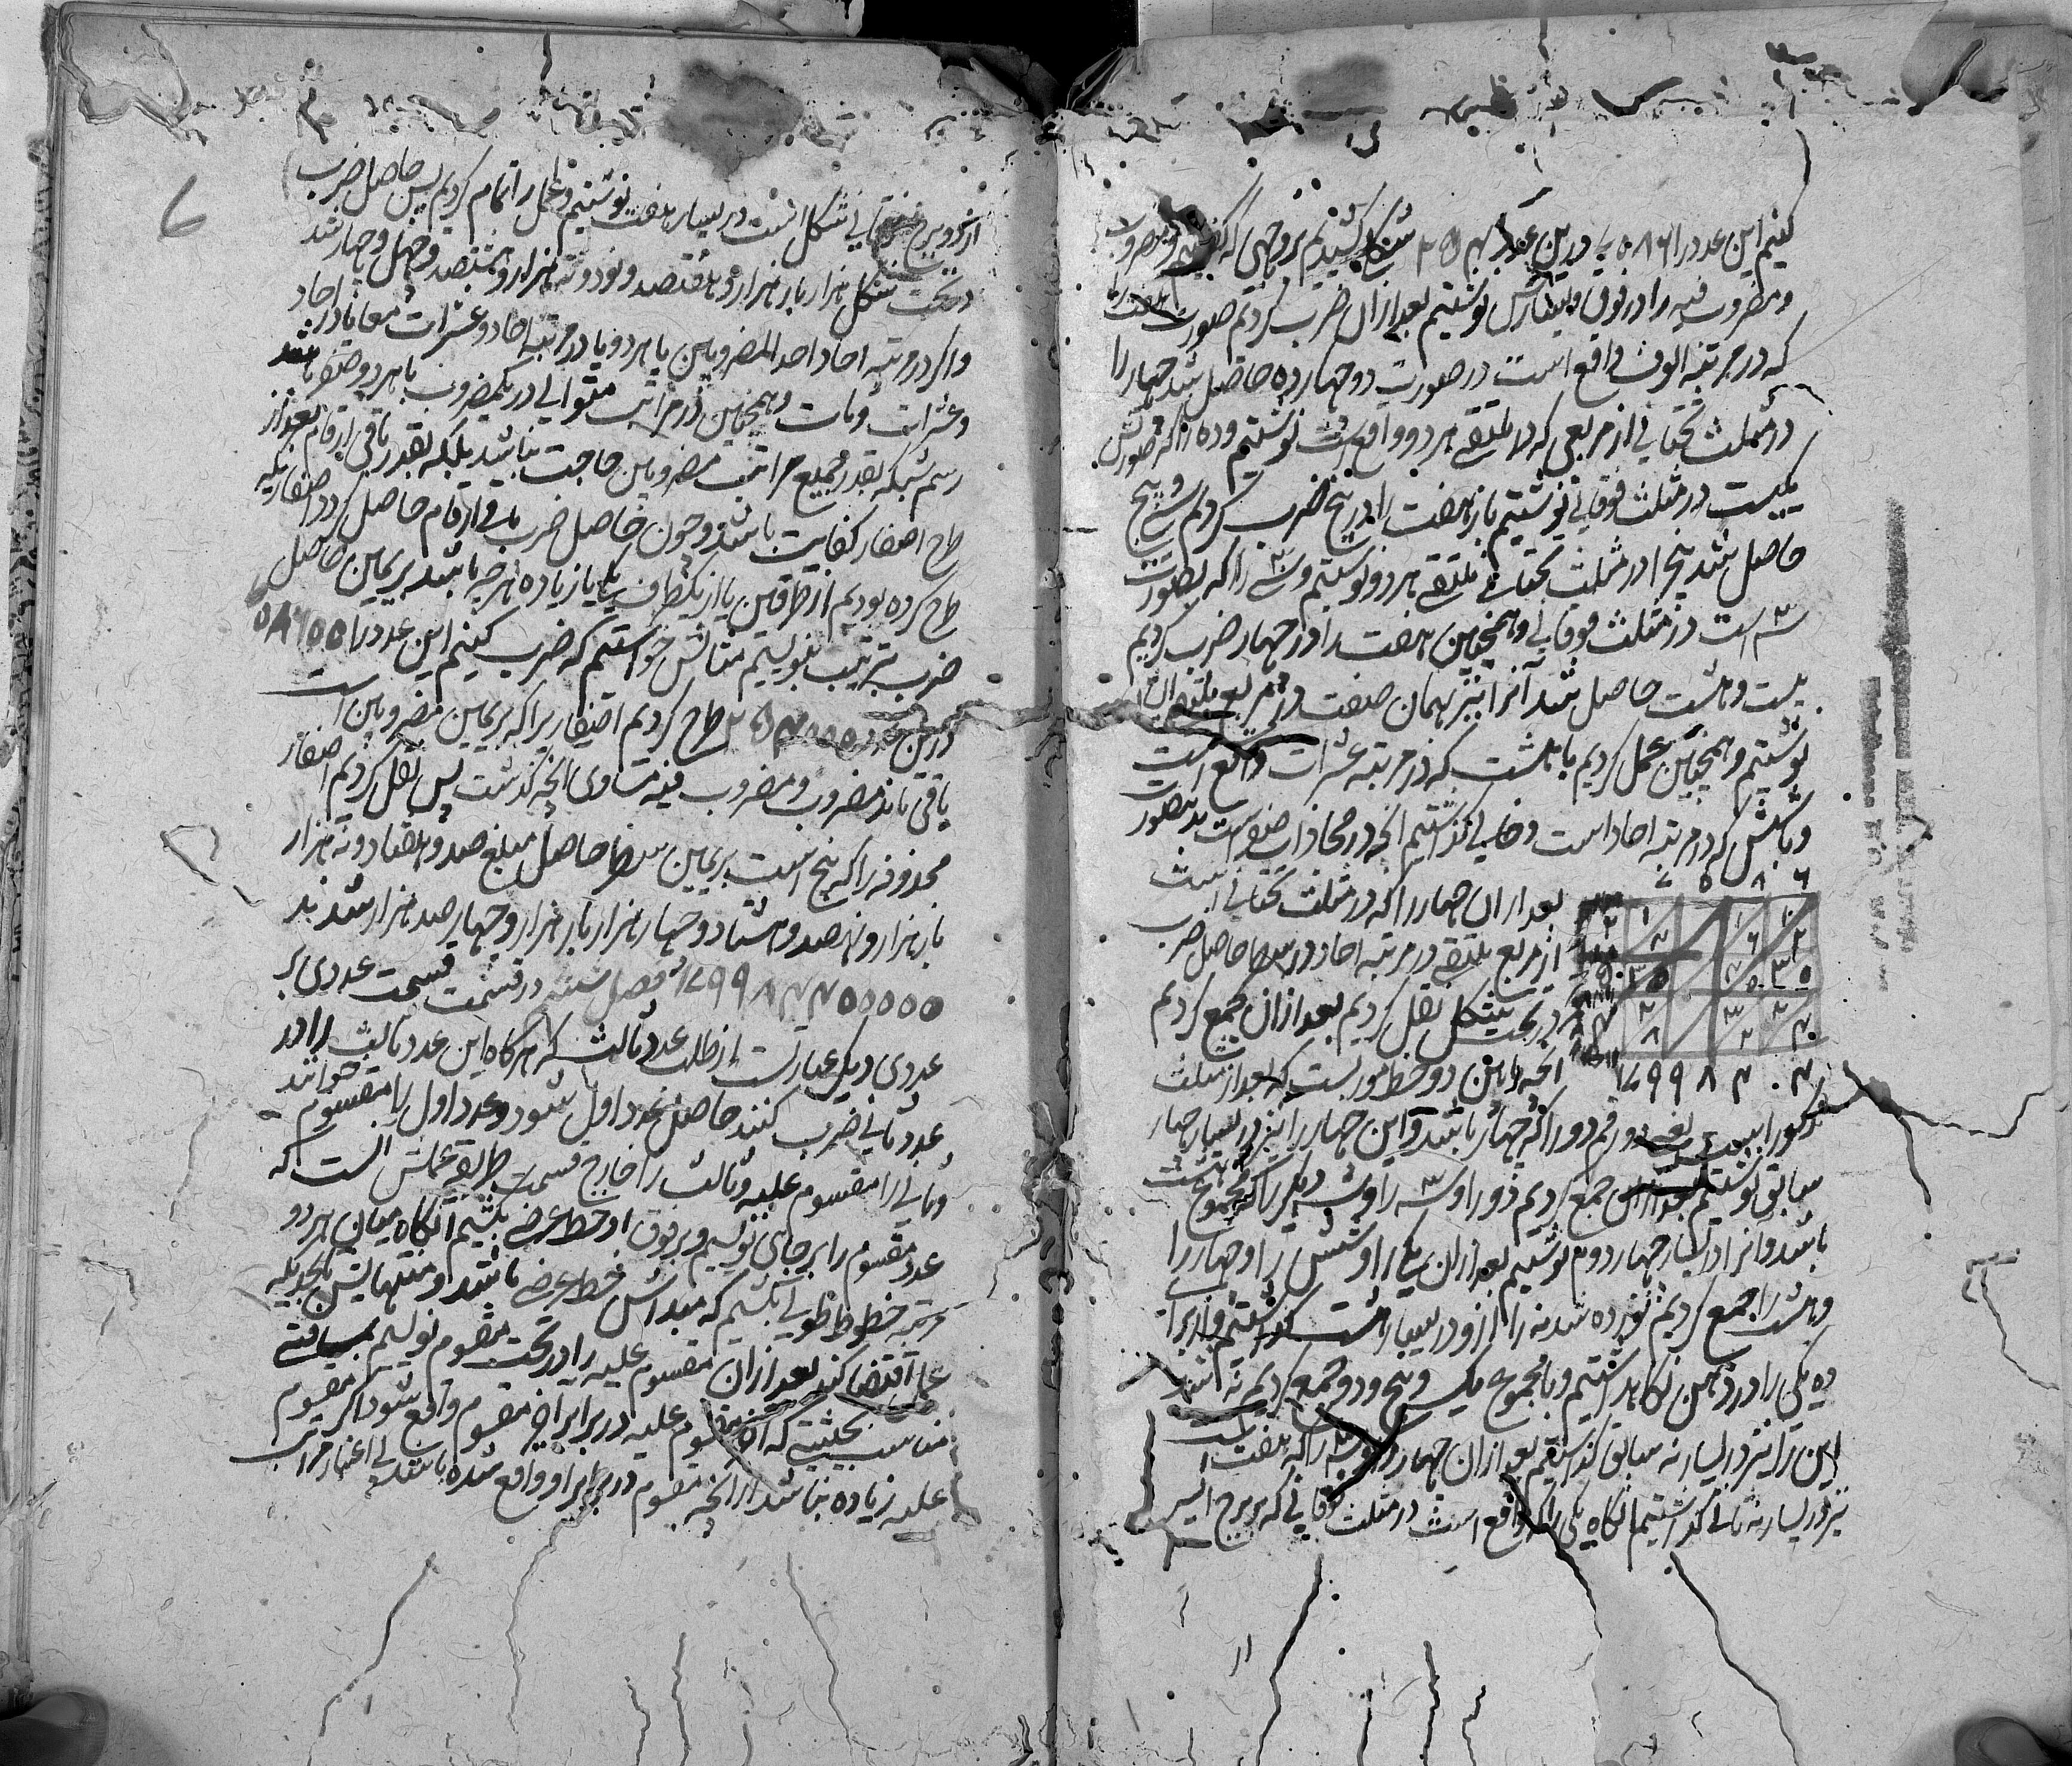 کنیم این عدد را ۷۰۸۶ در این عدد ۲۵۴ شبکه کشیدیم بر وجهی که
و مضروب فیه را در فوق و یسارش نوشتیم بعد ازان ضرب کردیم صورت هفت را
که در مرتبه الوف واقع است در صورت دو چهارده حاصل شد چهار را
در مثلث تحتانی از مربعی که در ملتقی هر دو واقع است نوشتیم و ده را که صورتش
یکیست در مثلث فوقانی نوشتیم باز هفت را در پنج ضرب کردیم سی و پنج
حاصل شد پنج را در مثلث تحتانی ملتقی هر دو نوشتیم و سی را که بصورت
سه است در مثلث فوقانی و همچنین هفت را در چهار ضرب کردیم
بیست و هشت حاصل شد آنرا نیز بهمان صفت در مربع ملتقی
نوشتیم و همچنین عمل کردیم با هشت که در مرتبه عشرات واقع است
و با شش که در مرتبه احاد است و خالی گذاشتیم آنچه در محاذات صفر است بدینصورت
بعد ازان چهار را که در مثلث تحتانی است
از مربع ملتقی در مرتبه احاد در سطر حاصل ضرب
در تحت شکل نقل کردیم بعد ازان جمع کردیم
آنچه مابین دو خط مورب است که بعد از مثلث
مذکور است یعنی دو رقم دو را که چهار باشد و این چهار را نیز در یسار چهار
سابق نوشتیم بعد ازان جمع کردیم دو را و سه را و سه دیگر را که مجموع هشت
باشد و آنرا در یسار چهار دوم نوشتیم بعد ازان یک را و شش را و چهار را
و هشت را جمع کردیم نوزده شد نه را ازو در یسار هشت گذاشتیم و از برای
ده یکی را در ذهن نگاه داشتیم و با مجموع یک و پنج و دو جمع کردیم نه شد
این را نیز در یسار نه سابق گذاشتیم بعد ازان چهار و سه را که هفت است
نیز در یسار نه ثانی گذاشتیم آنگاه یکی را که واقع است در مثلث فوقانی که بر برج ایسر
۷ ۰ ۸ ۶
۱۷۹۹۸۴۰۴
از دو برج فوقانی شکل است در یسار هفت نوشتیم و عمل را تمام کردیم پس حاصل ضرب
در تحت شکل هزار بار هزار و هفتصد و نود و نه هزار و هشتصد و چهل و چهار شد
و اگر در مرتبه احاد احد المضروبین یا هر دو یا در مرتبه احاد و عشرات معا یا در احاد
و عشرات و مات و همچنین در مراتب متوالی در یک مضروب یا هر دو صفر باشد
رسم شبکه بقدر جمیع مراتب مضروبین حاجت نباشد بلکه بقدر باقی ارقام بعد از
طرح اصفار کفایت باشد و چون حاصل ضرب باقی ارقام حاصل گردد اصفاریکه
طرح کرده بودیم از طرفین یا از یکطرف یک یا زیاده هر چه باشد بر یمین حاصل
ضرب بترتیب بنویسیم مثالش خواستیم که ضرب کنیم این عدد را
در این عدد ۲۵۴۰۰۰ طرح کردیم اصفاریرا که بر یمین مضروبین است
باقی ماند مضروب و مضروب فیه مساوی آنچه گذشت پس نقل کردیم اصفار
محذوفه را که پنج است بر یمین سطر حاصل مبلغ صد و هفتاد و نه هزار
بار هزار و نهصد و هشتاد و چهار هزار بار هزار و چهار صد هزار شد بد
۱۷۹۹۸۴۴۰۰۰۰۰ فصل ششم در قسمت قسمت عددی بر
عددی دیگر عبارتست از طلب عدد ثالث که هر گاه این عدد ثالث را در
عدد ثانی ضرب کنند حاصل عدد اول شود و عدد اول را مقسوم خوانند
و ثانی را مقسوم علیه و ثالث را خارج قسمت طریق عملش آنست که
عدد مقسوم را بر جای نویسیم و بر فوق او خط عرضی بکشیم آنگاه میان هر دو
مرتبه خطوط طولی بکشیم که مبداش خط عرضی باشد و منتهایش تا بحدیکه
عمل اقتضا کند بعد ازان مقسوم علیه را در تحت مقسوم نویسم بمسافتی
مناسب بحیثیتی که آخر مقسوم علیه در برابر آخر مقسوم واقع شود اگر مقسوم
علیه زیاده نباشد از آنچه مقسوم در برابر او واقع شده باشد بی اعتبار مراتب